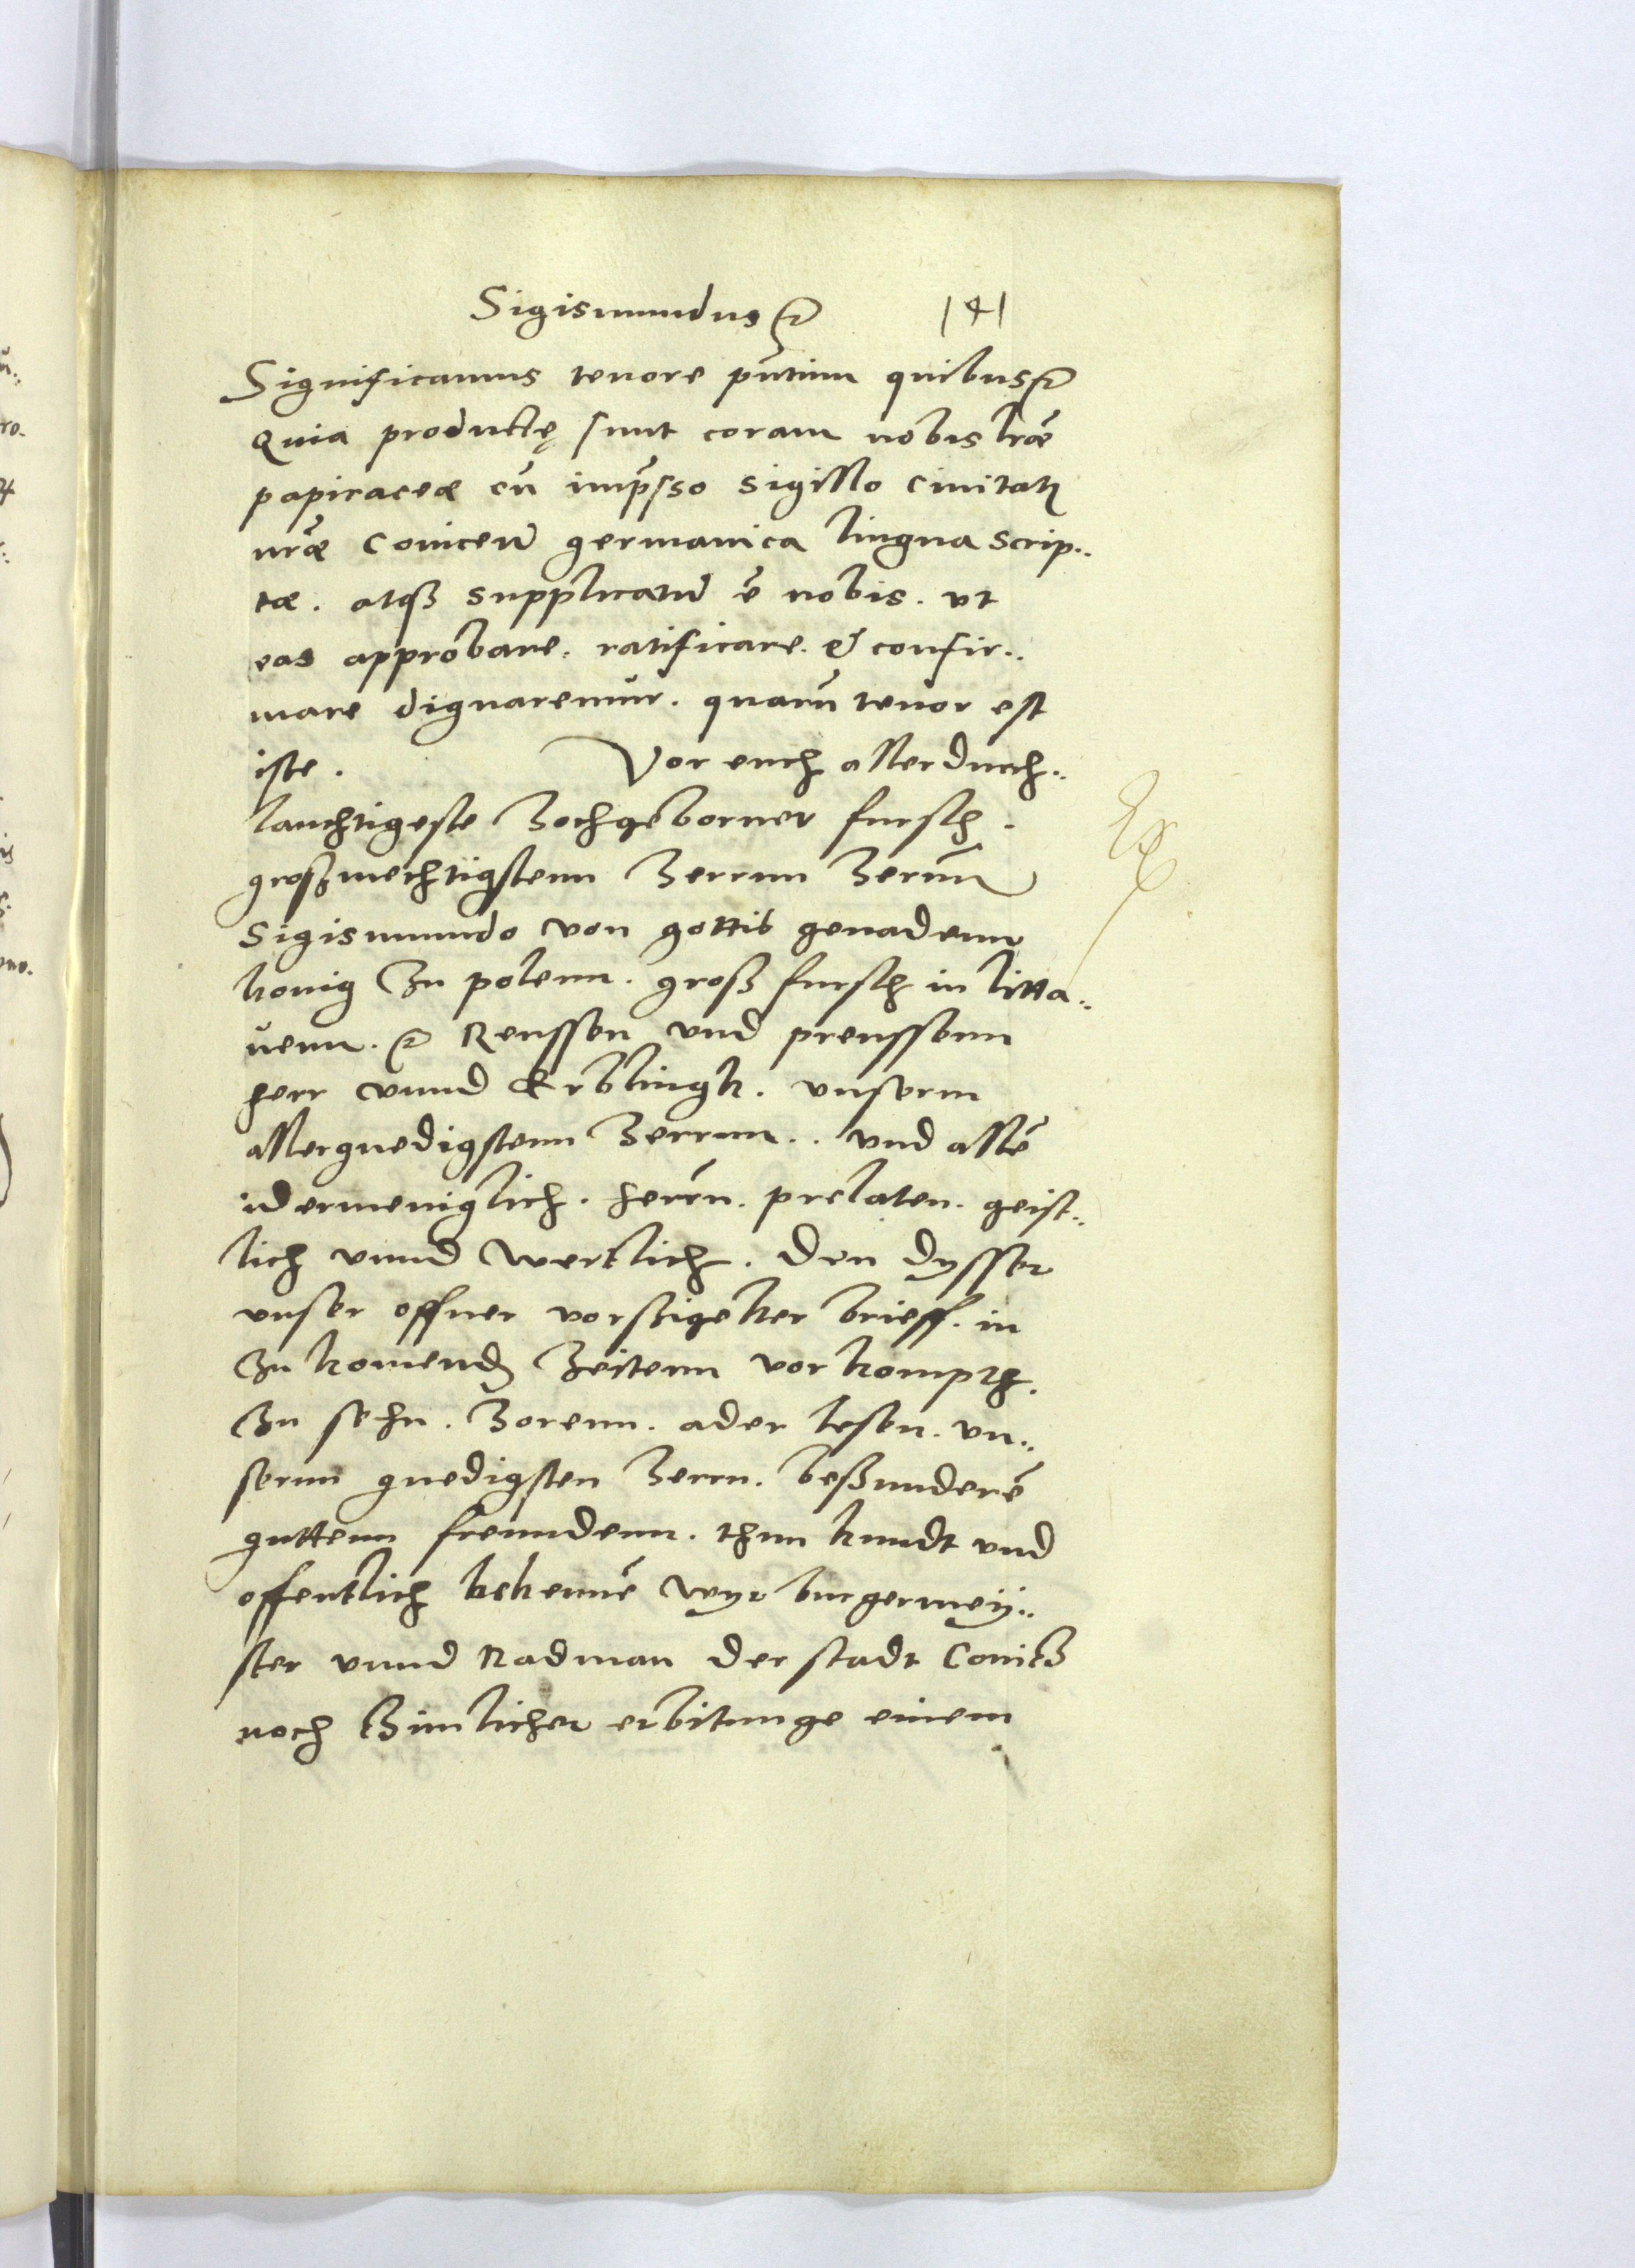 Sigismundus etc̃ 141
Significamus tenore pñtium quibus etc̃
Quia productę sunt coram nobis lrãe
papiraceae cũ imp̃sso sigillo ciuitatis
nrãe Conicen̄ germanica lingua scrip..
tae. atq₃ supplicatũ ẽ nobis. vt
eas approbare. ratificare. & confir..
mare dignaremur. quarũ tenor est
iste. Vor euch allerdurch..
lauchtigeste Hochgeborner fursth.
großmechtigstenn Herrnn Hernn
Sigismundo von gottis genadenn
konig Zu polenn. groß fursth in litta..
uenn. etc̃ Reussen vnd preussenn
herr vnnd Erblingk. vnserm
allergnedigstenn Herrnn.. vnd allẽ
idermeniglich. herrn. prelaten. geist..
lich vnnd wertlich. den dysser
vnser offner vorsigelter brieff. in
Zu komend₎ Zeitenn vor kompth.
Zu sehn. Horenn. ader lesen. vn..
sernn gnedigsten Herrn. beßunderẽ
guttenn freundenn. thun kundt vnd
offentlich bekennẽ wyr burgermey..
ster vnnd Radman der stadt Conitz
noch tzimlicher erbitunge einem